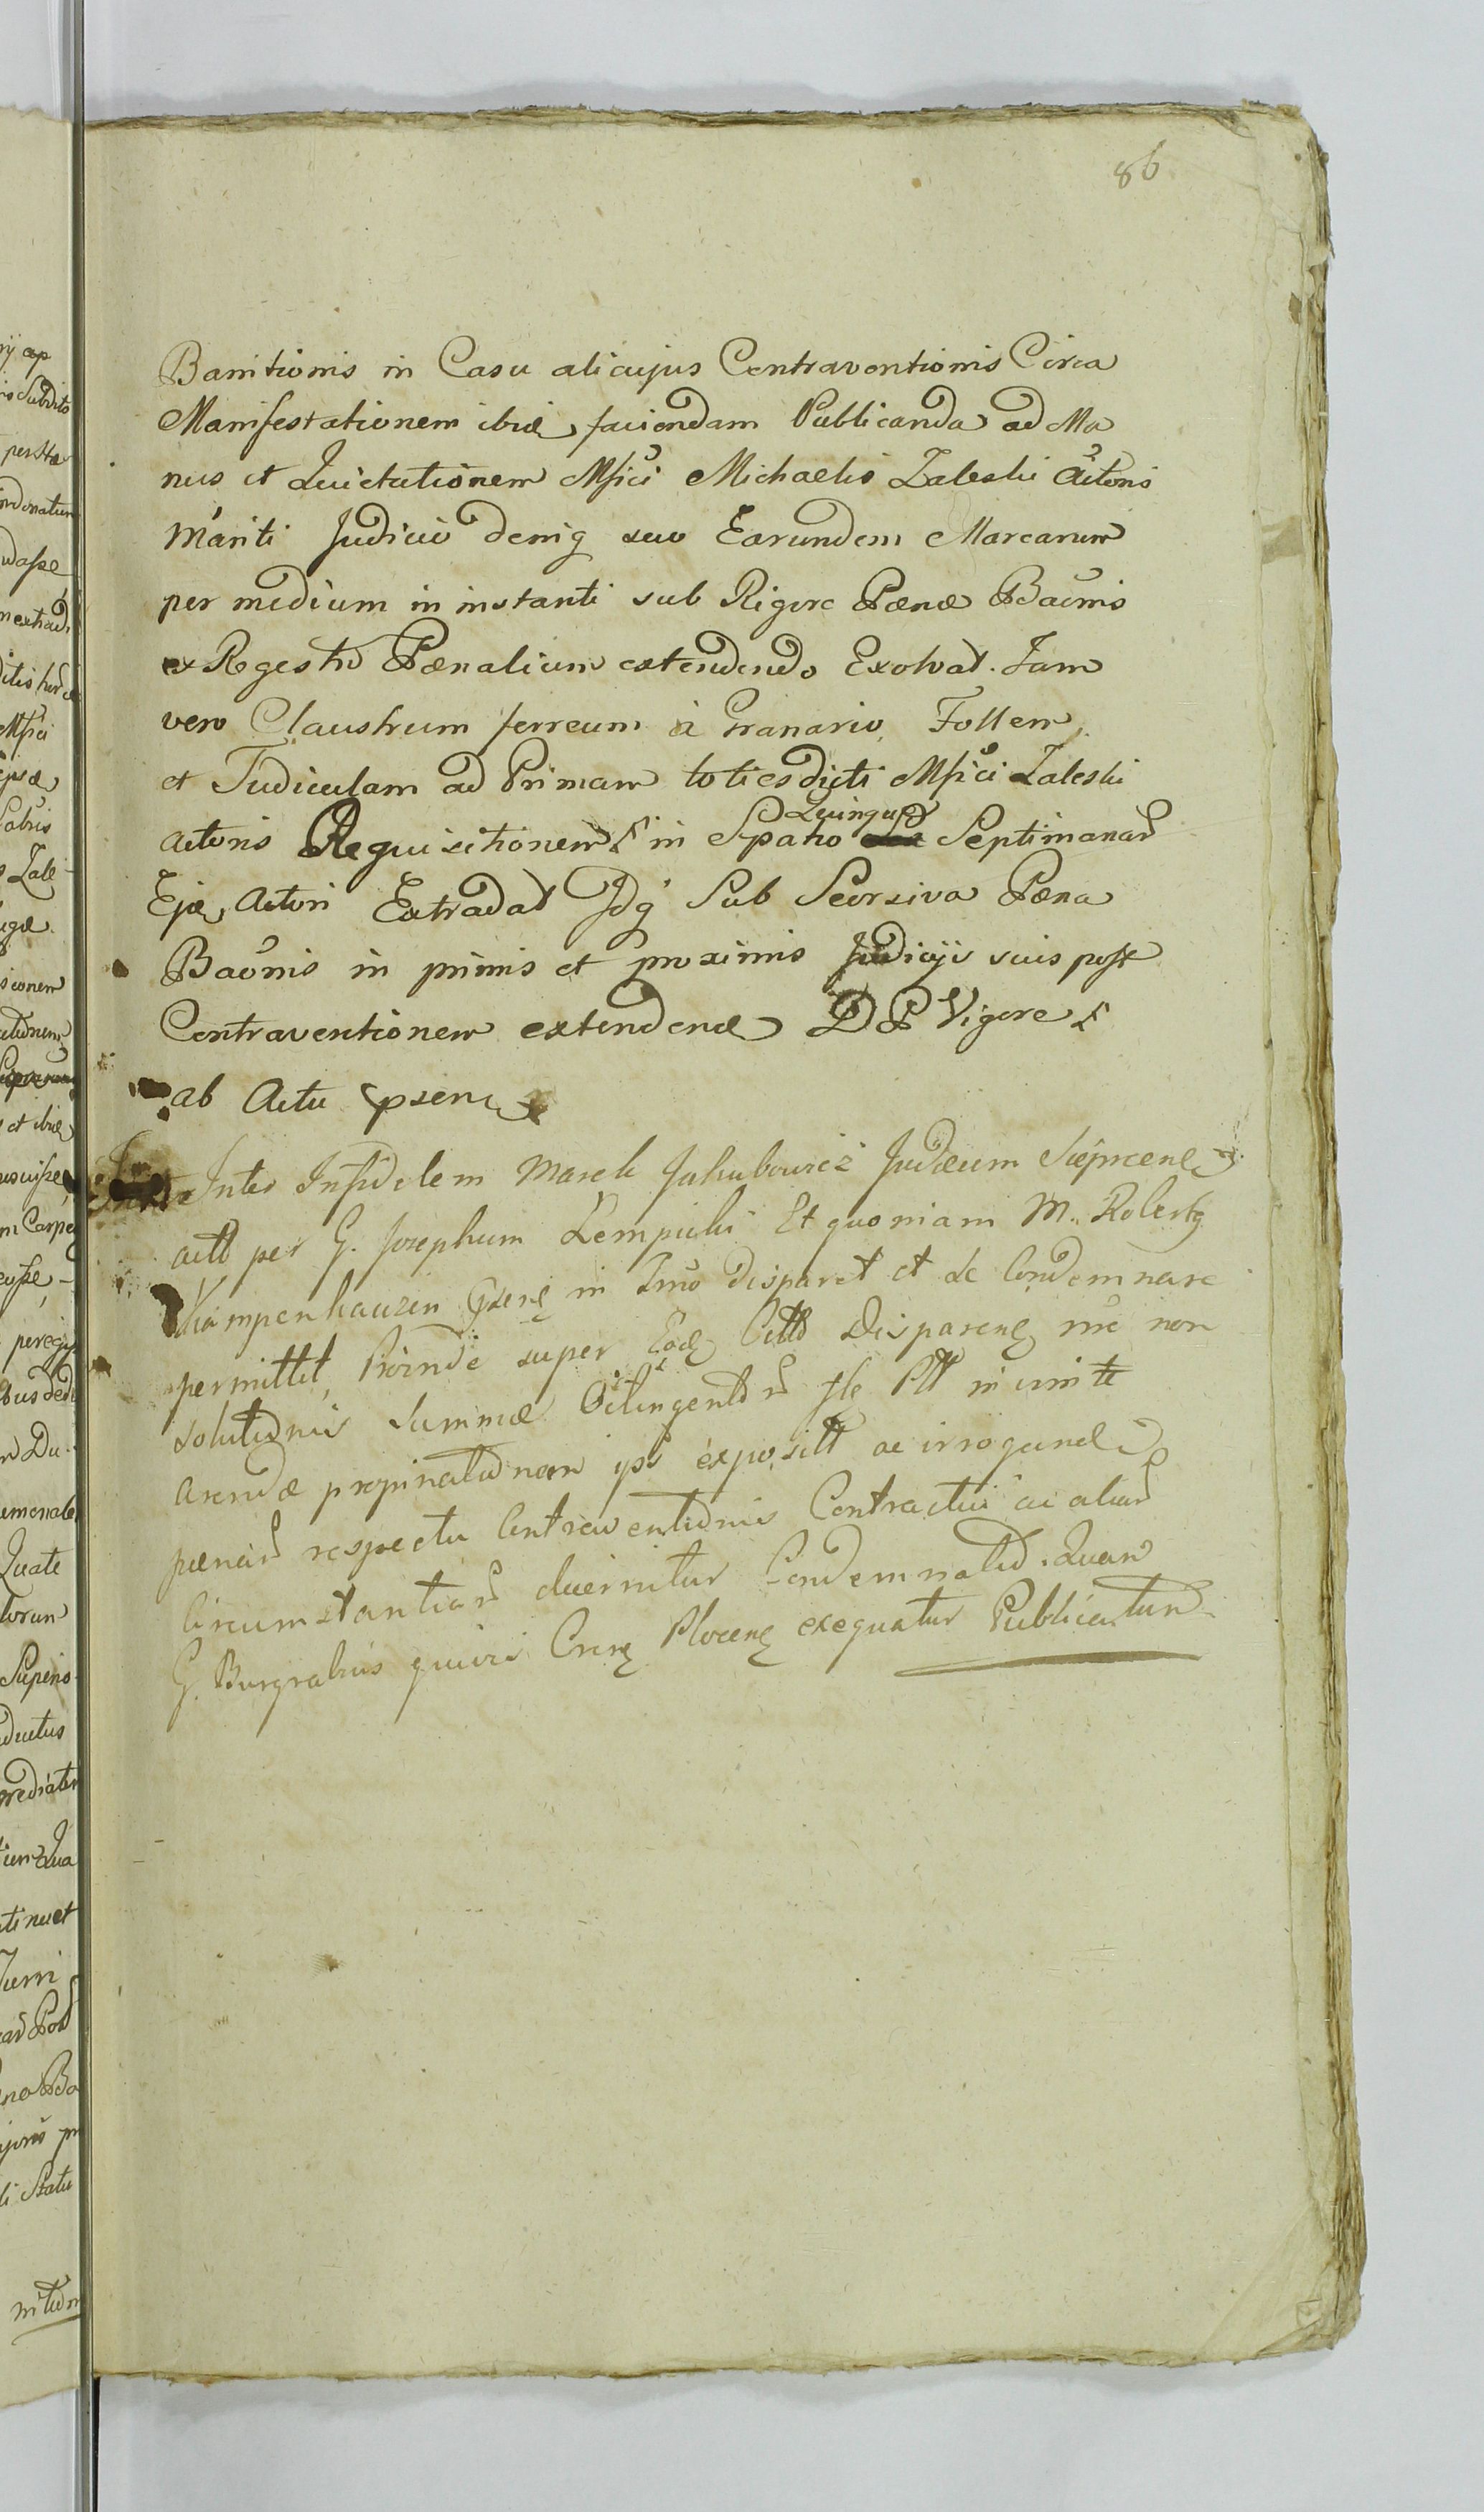 86
Banitionis in Casu alicujus Contraventionis Circa
Manifestationem ibid faciendam Publicanda ad Ma
nus et Quietationem Mfici Michaelis Zaleski Actoris
Mariti Judicio deniq suo Earundem Marcarum
per medium in instanti sub Rigore Pænæ Baonis
ex Regestro Pænalium extendendo Exolvat. Jam
vero Claustrum ferreum à Granario, Follem,
et Tudiculam ad Primam toties dicti Mfici Zaleski
Actoris Requisitionem in Spatio Quinque Septimanar
Ejæ Actori Extradat Idq Sub Seorsiva Pæna
Baonis in primis et proximis Judicijs suis post
Contraventionem extendenda D P Vigore
ab Actu psenti
Inter Infidelem Marek Jakubowicz Judæum Siepreens
act per G. Josephum Lempicki Et quoniam M. Robertg
Kampenhauzen in Tmo disparet et se Condemnare
permittit, Proinde super Eodem Citto Disparene me non
solutionis Summæ Ptt in vim
Arendæ propinationem ipsi exposit ac irrogand
pænar respectu Contraventionis Contractui ac aliar
Circumstantiar decernitur Condemnatio. Quam
G. Burgrabius quivis Crens Plocens exequatur Publicatum